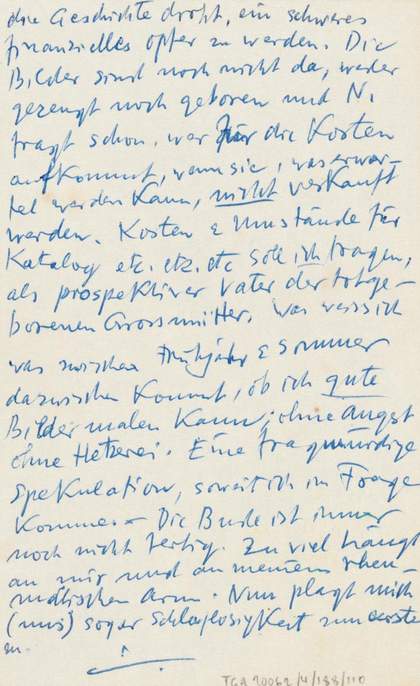 die Geschichte droht, ein schweres
finanzielles Opfer zu werden. Die
Bilder sind noch nicht da, weder
gezeugt noch geboren und N.
fragt schon, wer für die Kosten
aufkommt, wenn sie, was erwar-
tet werden kann, nicht verkauft
werden. Kosten & Umstände für
Katalog etc. etc. etc soll ich tragen,
als prospektiver Vater der totge-
borenen Grossmütter. Was weiss ich
was zwischen Frühjahr & Sommer
dazwischen kommt, ob ich gute
Bilder malen kann, ohne Angst
ohne Hetzerei. Eine fragwürdige
Spekulation, soweit ich in Frage
komme. – Die Bude ist immer
noch nicht fertig. Zu viel hängt
an mir und an meinem rheu-
matischen Arm. Nun plagt mich
(uns) sogar Schlaflosigkeit zum erste
n.
TGA 20062/4/188/110